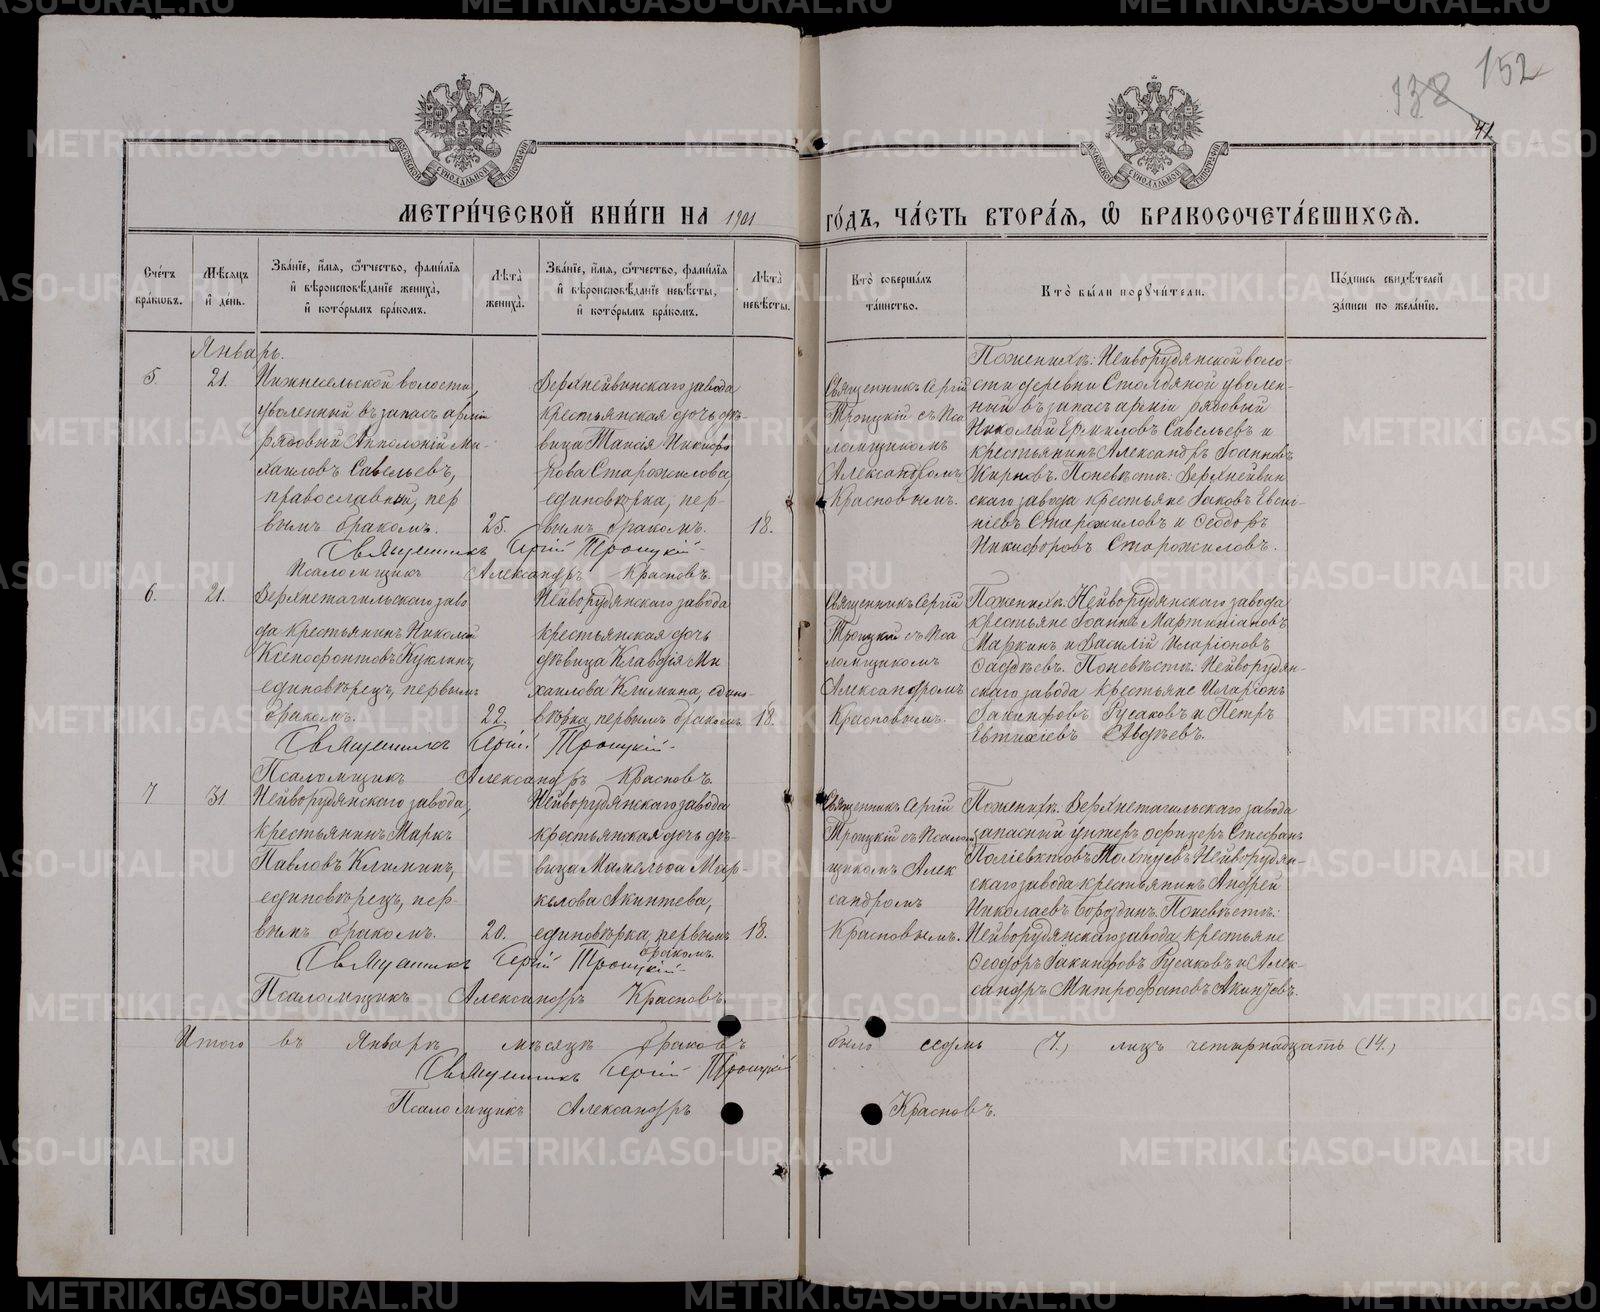 152
138
41.
МОСКОВСКОЙ СѴНОДАЛЬНОЙ ТИПОГРАФІИ
МОСКОВСКОЙ СѴНОДАЛЬНОЙ ТИПОГРАФІИ
МЕТРИ́ЧЕСКОЙ КНИ́ГИ НА 1901 ГО́ДЪ, ЧА́СТЬ ВТОРА́Ѧ, Ѽ БРАКОСОЧЕТА́ВШИХСѦ.
Сче́тъ
бра́кѡвъ.
Мѣ́сяцъ
и҆ де́нь.
Зва́нїе, и҆́мѧ, ѻ҆́тчество, фами́лїѧ
и҆ вѣроисповѣ́данїе жениха̀,
и҆ кото́рымъ бра́комъ.
Лѣ́та̀
жениха̀.
Зва́нїе, и҆́мѧ, ѻ҆́тчество, фами́лїѧ
и҆ вѣроисповѣ́данїе невѣ́сты,
и҆ кото́рымъ бра́комъ.
Лѣ́та̀
невѣ́сты.
Кто̀ соверша́лъ
та́инство.
Кто̀ бы́ли порꙋчи́тели.
По́дпись свидѣ́телей
за́писи по жела́нїю.
Январь.
5.
21.
Нижнесельской волости,
уволенный въ запасъ арміи
рядовый Апполоній Ми-
хаиловъ Савельевъ,
православный, пер
вымъ бракомъ.
25.
Верхнейвинскаго завода
крестьянская дочь дѣ-
вица Таисія Никифо
рова Старожилова
единовѣрка, пер-
вымъ бракомъ.
18.
Священникъ Сергій
Троицкій съ Пса
ломщикомъ
Александромъ
Красновымъ.
По женихѣ: Нейворудянской воло-
сти деревни Столбяной уволен-
ный въ запасъ арміи рядовый
Николай Ермиловъ Савельевъ и
крестьянинъ Александръ Іоанновъ
Жирновъ. По невѣстѣ: Верхнейвин
скаго завода крестьяне Іаковъ Евси-
гніевъ Старожиловъ и Ѳеодоръ
Никифоровъ Старожиловъ.
Священникъ Сергій Троицкій
Псаломщикъ Александръ Красновъ.
6.
21.
Верхнетагильскаго заво
да крестьянинъ Николай
Ксенофонтовъ Куклинъ,
единовѣрецъ, первымъ
бракомъ.
22.
Нейворудянскаго завода
крестьянская дочь
дѣвица Клавдія Ми
хаилова Климина, едино-
вѣрка, первымъ бракомъ.
18.
Священникъ Сергій
Троицкій съ Пса
ломщикомъ
Александромъ
Красновымъ.
По женихѣ: Нейворудянскаго завода
крестьяне Іоаннъ Мартиніановъ
Маркинъ и Василій Иларіоновъ
По невѣстѣ: Нейворудян-
скаго завода крестьяне Иларіонъ
Іакинфовъ Гусаковъ и Петръ
Евтихіевъ Авдѣевъ.
Священникъ Сергій Троицкій
Псаломщикъ Александръ Красновъ.
7
31
Нейворудянскаго завода,
крестьянинъ Маркъ
Павловъ Климинъ,
единовѣрецъ, пер-
вымъ бракомъ.
20.
Нейворудянскаго завода
крестьянская дочь дѣ-
вица Мамельфа Мар-
келова Акинтева,
единовѣрка, первымъ
бракомъ.
18.
Священникъ Сергій
Троицкій съ Псалом
щикомъ Алек
сандромъ
Красновымъ.
По женихѣ: Верхнетагильскаго завода
запасный унтеръ офицеръ Стефанъ
Поліевктовъ Толстуевъ Нейворудян-
скаго завода крестьянинъ Андрей
Николаевъ Бороздинъ. По невѣстѣ:
Нейворудянскаго завода крестьяне
Ѳеодоръ Іакинфовъ Гусаковъ и Алек-
сандръ Митрофановъ Акинтовъ.
Священникъ Сергій Троицкій
Псаломщикъ Александръ Красновъ
Итого въ Январѣ мѣсяцѣ браковъ было седмь (7.) лицъ четырнадцать (14.)
Священникъ Сергій Троицкій
Псаломщикъ Александръ Красновъ.
METRIKI.GASO-URAL.RU